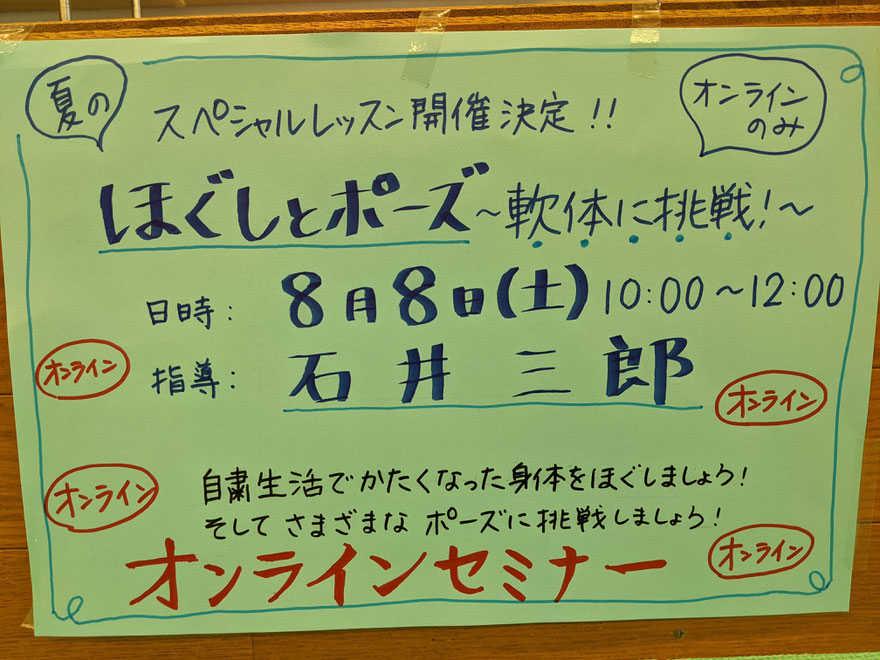 夏の
スペシャルレッスン開催決定!!
オンライン
のみ
ほぐしとポーズ~軟体に挑戦!~
日時: 8月8日(土)10:00~12:00
指導: 石井三郎
オンライン
オンライン
オンライン
自粛生活でかたくなった身体をほぐしましょう!
そしてさまざまなポーズに挑戦しましょう!
オンライン
オンラインセミナー